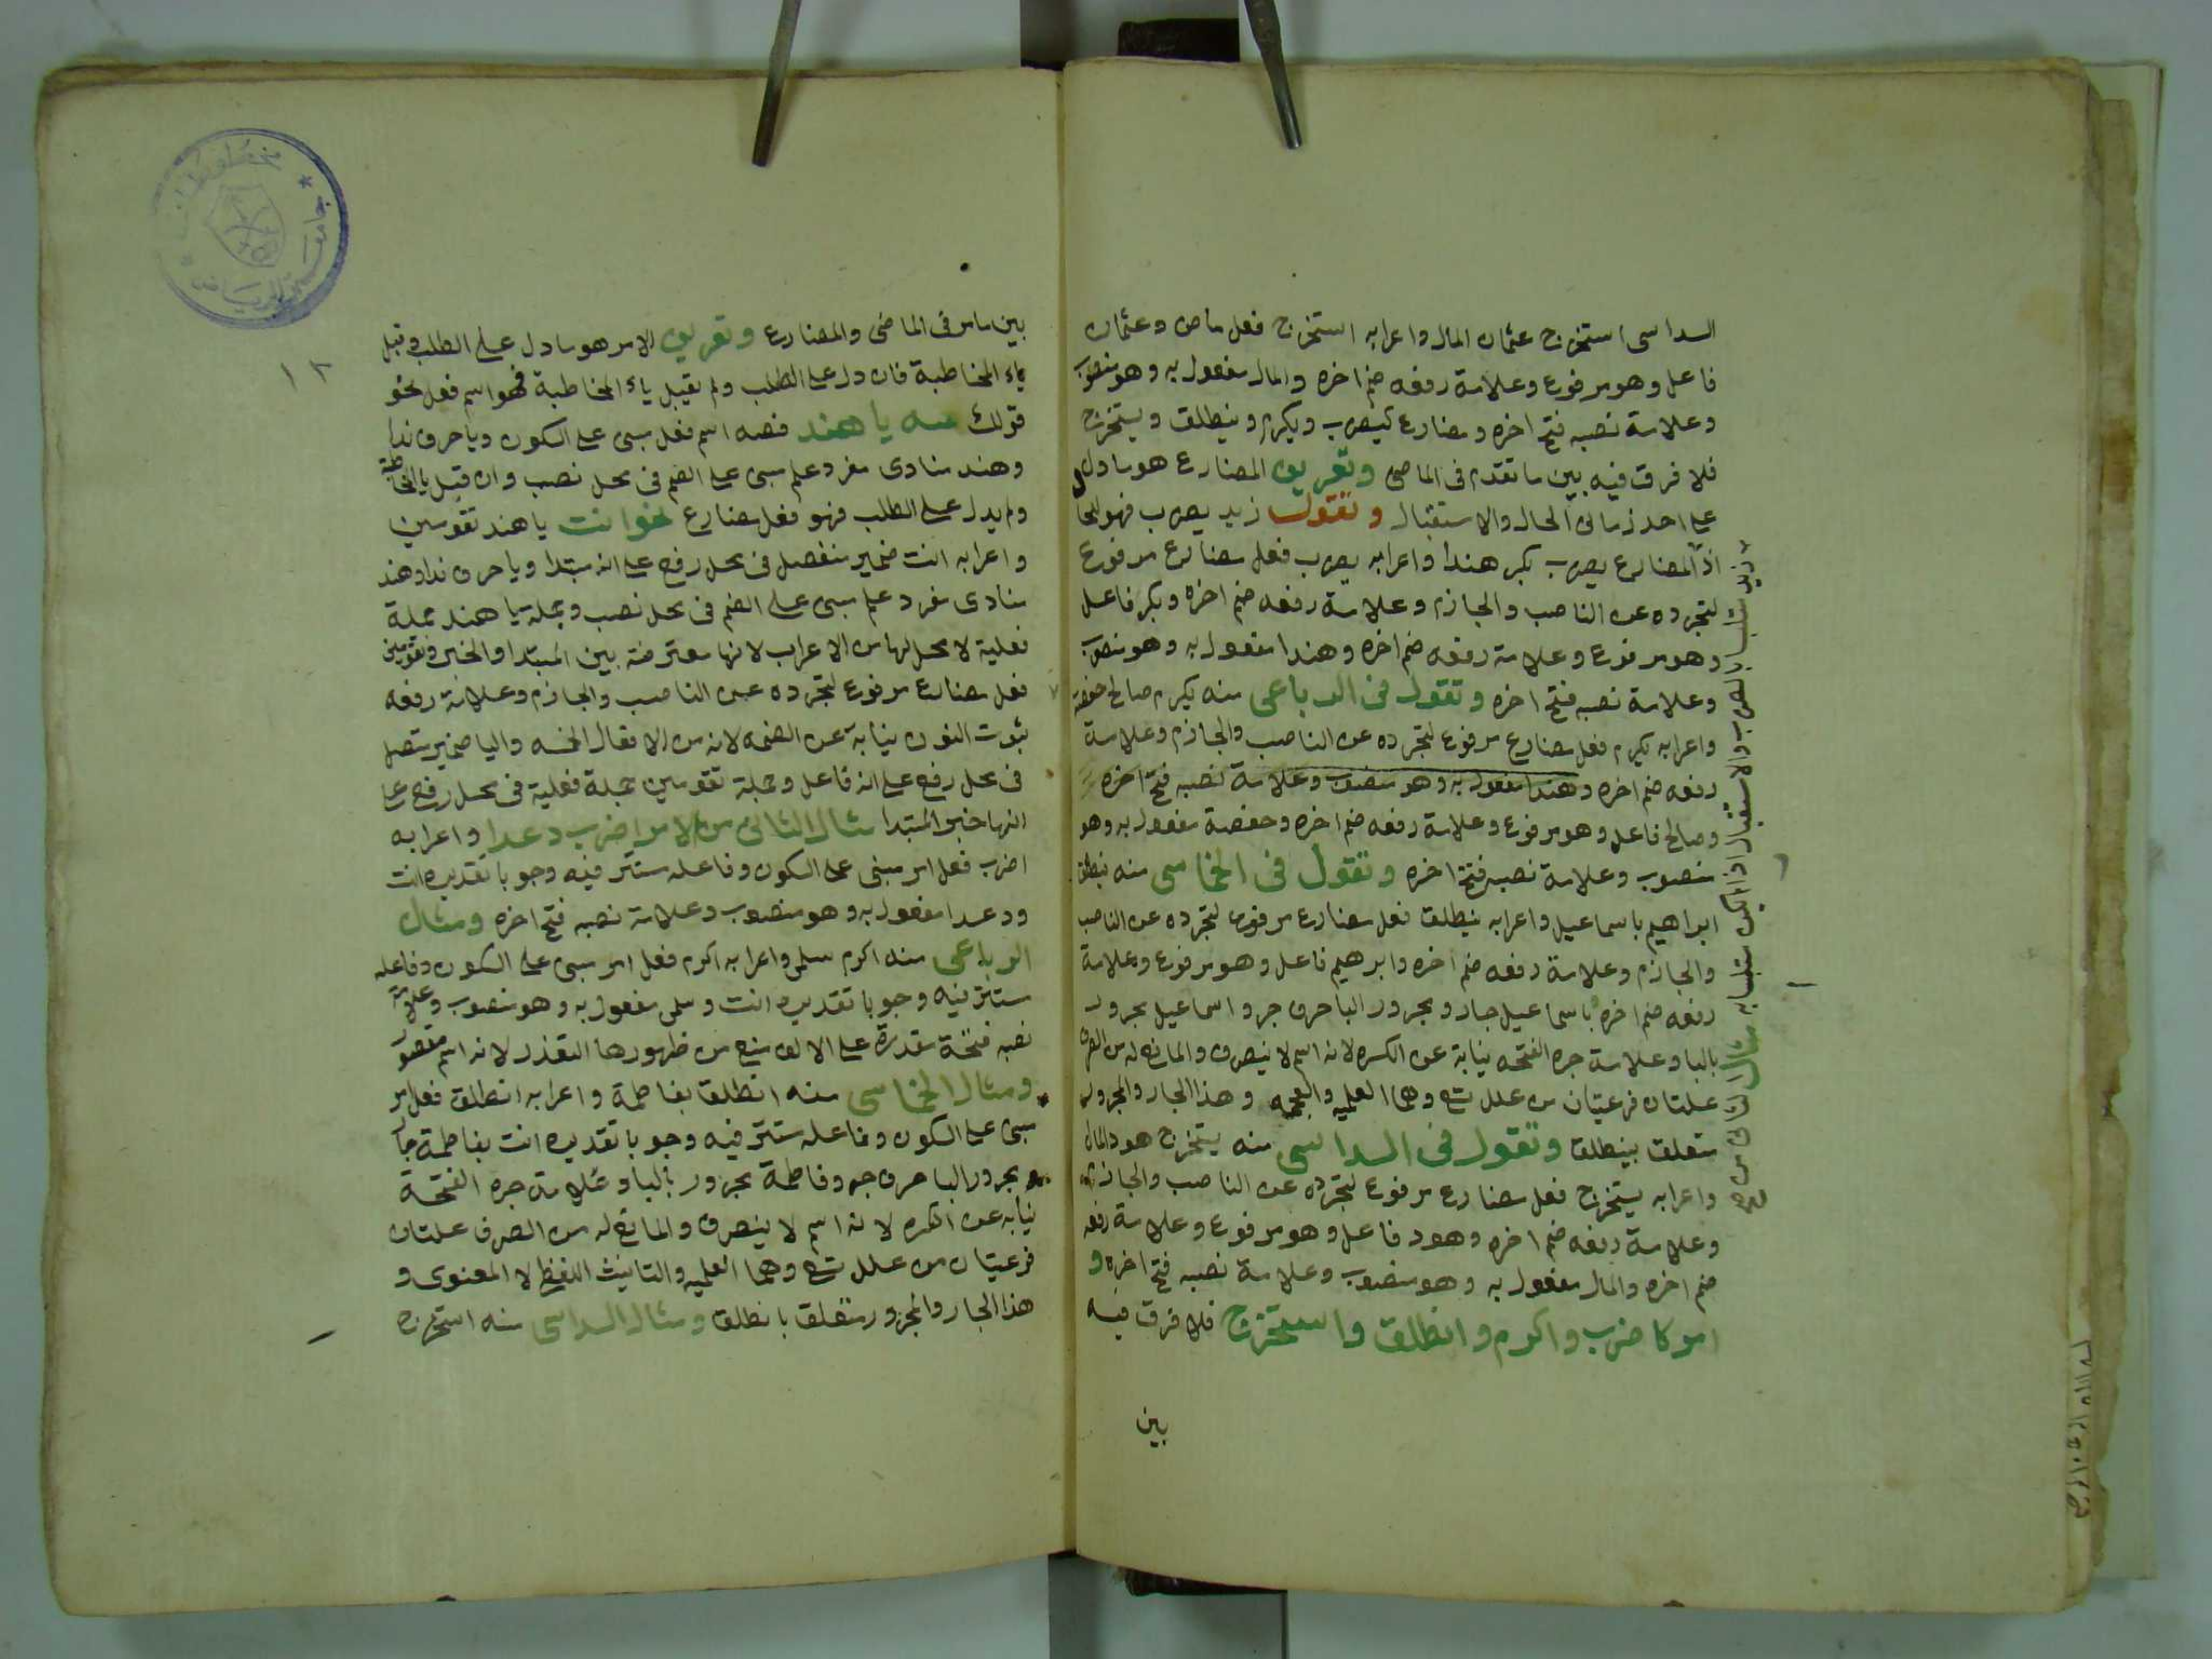 السداسى استخرج عثمان المال واعرابه استخرج فعل ماض وعثمان
فاعل وهو مرفوع وعلامة رفعه ضم اخره والمال مفعول به وهو منصوب
وعلامة نصبه فتح اخره ومضارع كيضرب ويكرم وينطلق ويستخرج
فلا فرق فيه بين ما تقدم فى الماضى وتعريف المضارع هو ما دل
على احد زمانى الحال والاستقبال وتقول زيد يضرب فهو للحا
اذ المضارع يضرب بكر هندا واعرابه يضرب فعل مضارع مرفوع
لتجرده عن الناصب والجازم وعلامة رفعه ضم اخره وبكر فاعل
وهو مرفوع وعلامة رفعه ضم اخره وهندا مفعول به وهو منصوب
وعلامة نصبه فتح اخره وتقول فى الرباعى منه يكرم صالح حفصة
واعرابه يكرم فعل مضارع مرفوع لتجرده عن الناصب والجازم وعلامة
رفعه ضم اخره وهندا مفعول به وهو منصوب وعلامة نصبه فتح اخره
وصالح فاعل وهو مرفوع وعلامة رفعه ضم اخره وحفصة مفعول به وهو
منصوب وعلامة نصبه فتح اخره وتقول فى الخماسى منه ينطلق
ابراهيم باسماعيل واعرابه ينطلق فعل مضارع مرفوع لتجرده عن الناصب
والجازم وعلامة رفعه ضم اخره وابرهيم فاعل وهو مرفوع وعلامة
رفعه ضم اخره باسماعيل جار ومجرور البا حرف جر واسماعيل مجرور
بالبا وعلامة جره الفتحه نيابة عن الكسره لانه اسم لا ينصرف والمانع له من الصرف
علتان فرعيتان من علل تسع وهما العلميه والعجمه وهذا الجار والمجرور
متعلق بينطلق وتقول فى السداسى منه يستخرج هود المال
واعرابه يستخرج فعل مضارع مرفوع لتجرده عن الناصب والجازم
وعلامة رفعه ضم اخره وهود فاعل وهو مرفوع وعلامة رفعه
ضم اخره والمال مفعول به وهو منصوب وعلامة نصبه فتح اخره و
امر كاضرب واكرم وانطلق واستخرج فلا فرق فيه
بين
بين ما مر فى الماضى والمضارع وتعريف الامر هو ما دل على الطلب وقبل
ياء المخاطبة فان دل على الطلب ولم يقبل ياء المخاطبة فهو اسم فعل نحو
قولك صه يا هند فصه اسم فعل مبنى على السكون ويا حرف ندا
وهند منادى مفرد علم مبنى على الضم فى محل نصب وان قبل يا المخاطبة
ولم يدل على الطلب فهو فعل مضارع نحو انت يا هند تقومين
واعرابه انت ضمير منفصل فى محل رفع على انه مبتدا ويا حرف ندا وهند
منادى مفرد علم مبنى على الضم فى محل نصب وجملة يا هند جملة
فعلية لا محل لها من الاعراب لانها معترضة بين المبتدا والخبر وتقومين
فعل مضارع مرفوع لتجرده عن الناصب والجازم وعلامة رفعه
ثبوت النون نيابة عن الضمه لانه من الافعال الخمسه واليا ضمير متصل
فى محل رفع على انه فاعل وجملة تقومين جملة فعلية فى محل رفع على
انها خبر المبتدا مثال الثانى من الامر اضرب دعدا واعرابه
اضرب فعل امر مبنى على السكون وفاعله مستتر فيه وجوبا تقديره انت
ودعدا مفعول به وهو منصوب وعلامة نصبه فتح اخره ومثال
الرباعى منه اكرم سلمى واعرابه اكرم فعل امر مبنى على السكون وفاعله
مستتر فيه وجوبا تقديره انت وسلمى مفعول به وهو منصوب وعلامة
نصبه فتحة مقدرة على الالف منع من ظهورها التعذر لانه اسم مقصور
ومثال الخماسى منه انطلق بفاطمة واعرابه انطلق فعل امر
مبنى على السكون وفاعله مستتر فيه وجوبا تقديره انت بفاطمة جا
ر ومجرور البا حرف جر وفاطمة مجرور بالبا وعلامة جره الفتحة
نيابه عن الكسره لانه اسم لا ينصرف والمانع له من الصرف علتان
فرعيتان من علل تسع وهما العلميه والتانيث اللفظى لا المعنوى و
هذا الجار والمجرور متعلق بانطلق ومثال السداسى منه استخرج
١٨
مخطوطات
جامعة الرياض